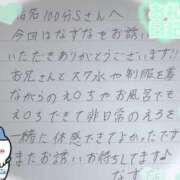 指名100分Sさんへ
今回はなずなをお誘い
いただきありがとうございます!!
お兄さんとスク水や制服を着
ながらのえ〇ちやお風呂でも
え〇ちできて非日常のえろを
一緒に体感できてよかったです
またお誘いお待ちしてます♪
なずな